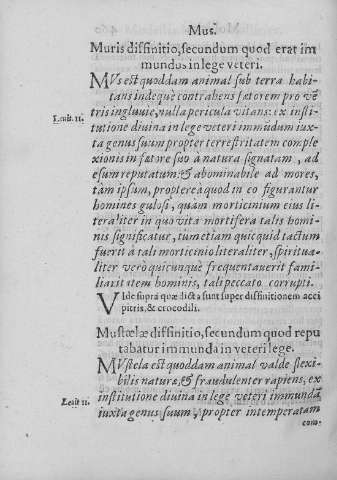 Mus.
Muris diffinitio, secundum quod erat im
mundus in lege veteri.
MVs est quoddam animal sub terra habi-
tans indeque contrahens fœtorem pro ve~
tris ingluuie, nulla pericula vitans: ex insti
Leuit 11.
tutione diuina in lege veteri immũdum iux-
ta genus suum propter terrestritatem comple
xionis in fœtore suo a natura signatam, ad
esum reputatum: & abominabile ad mores,
tãm ipsum, propterea quod in eo figurantur
homines gulosi, quàm morticinium eius li-
teraliter in quo vita mortifera talis homi-
nis significatur, tum etiam quicquid tactum
fuerit à tali morticinio literaliter, spiritua-
liter verò quicunque frequentauerit fami-
liaritatem hominis, tali peccato corrupti.
VIde supra quæ dicta sunt super diffinitionem acci
pitris, & crocodili.
Mustælæ diffinitio, secundum quod repu
tabatur immunda in veteri lege.
MVstela est quoddam animal valde flexi-
bilis naturæ, & fraudulenter rapiens, ex
Leuit 11.
institutione diuina in lege veteri immundã
iuxta genus suum, propter intemperatam
com-